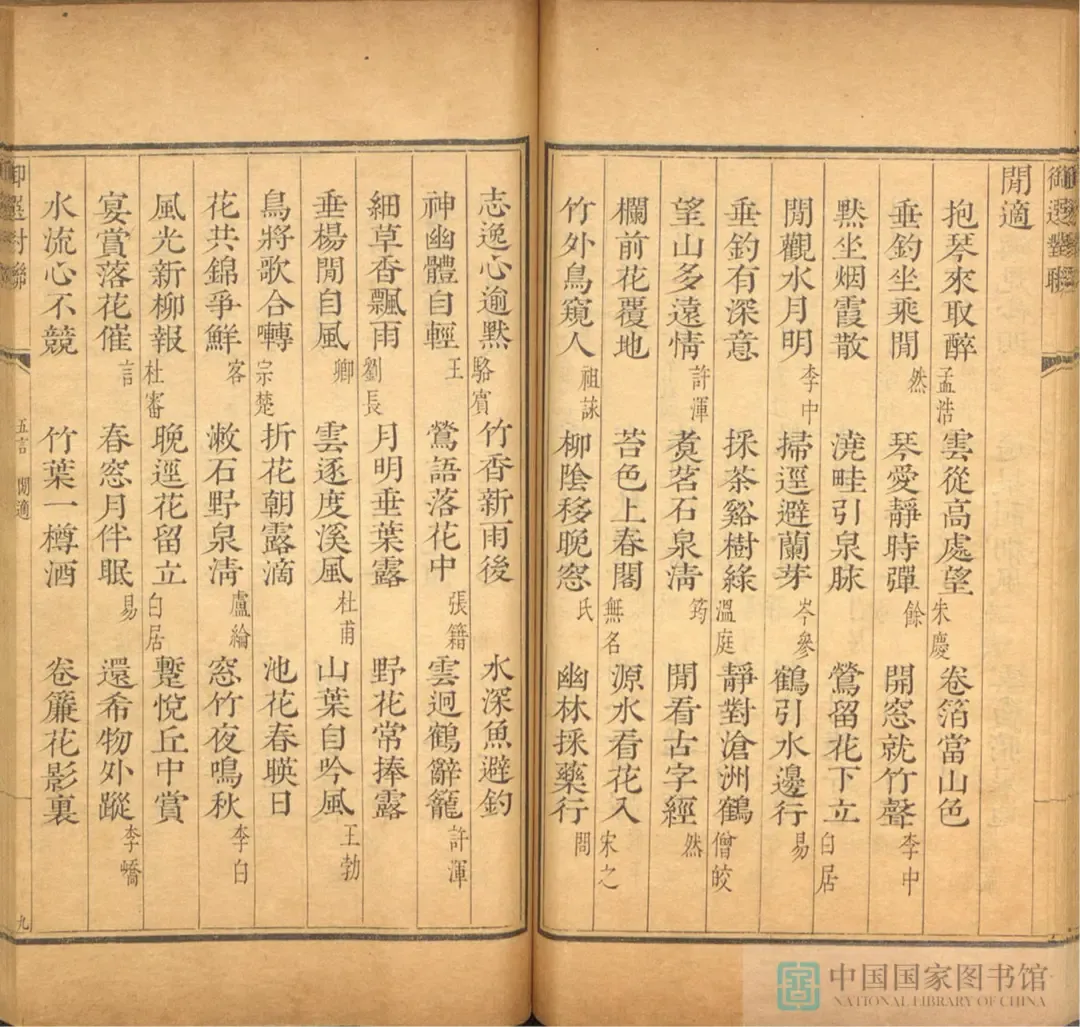 御選對聯
閒適
抱琴來取醉 雲從高處望 卷箔當山色
垂釣坐乘閒 孟浩然 琴愛靜時彈 朱慶餘 開窓就竹聲 李中
默坐烟霞散 澆畦引泉脉 鶯留花下立
閒觀水月明 李中 掃逕避蘭芽 岑參 鶴引水邊行 白居易
垂釣有深意 採茶谿樹綠 靜對滄洲鶴
望山多遠情 許渾 煑茗石泉清 溫庭筠 閒看古字經 僧皎然
欄前花覆地 苔色上春閣 源水看花入
竹外鳥窺人 祖詠 柳陰移晚窓 無名氏 幽林採藥行 宋之問
志逸心逾默 竹香新雨後 水深魚避釣
神幽體自輕 駱賓王 鶯語落花中 張籍 雲迥鶴辭籠 許渾
細草香飄雨 月明垂葉露 野花常捧露
垂楊閒自風 劉長卿 雲逐度溪風 杜甫 山葉自吟風 王勃
鳥將歌合囀 折花朝露滴 池花春暎日
花共錦爭鮮 宗楚客 漱石野泉清 盧綸 窓竹夜鳴秋 李白
風光新柳報 晚逕花留立 蹔悅丘中賞
宴賞落花催 杜審言 春窓月伴眠 白居易 還希物外蹤 李嶠
水流心不競 竹葉一樽酒 卷簾花影裏
御選對聯 五言 閒適 九
中国国家图书馆
NATIONAL LIBRARY OF CHINA